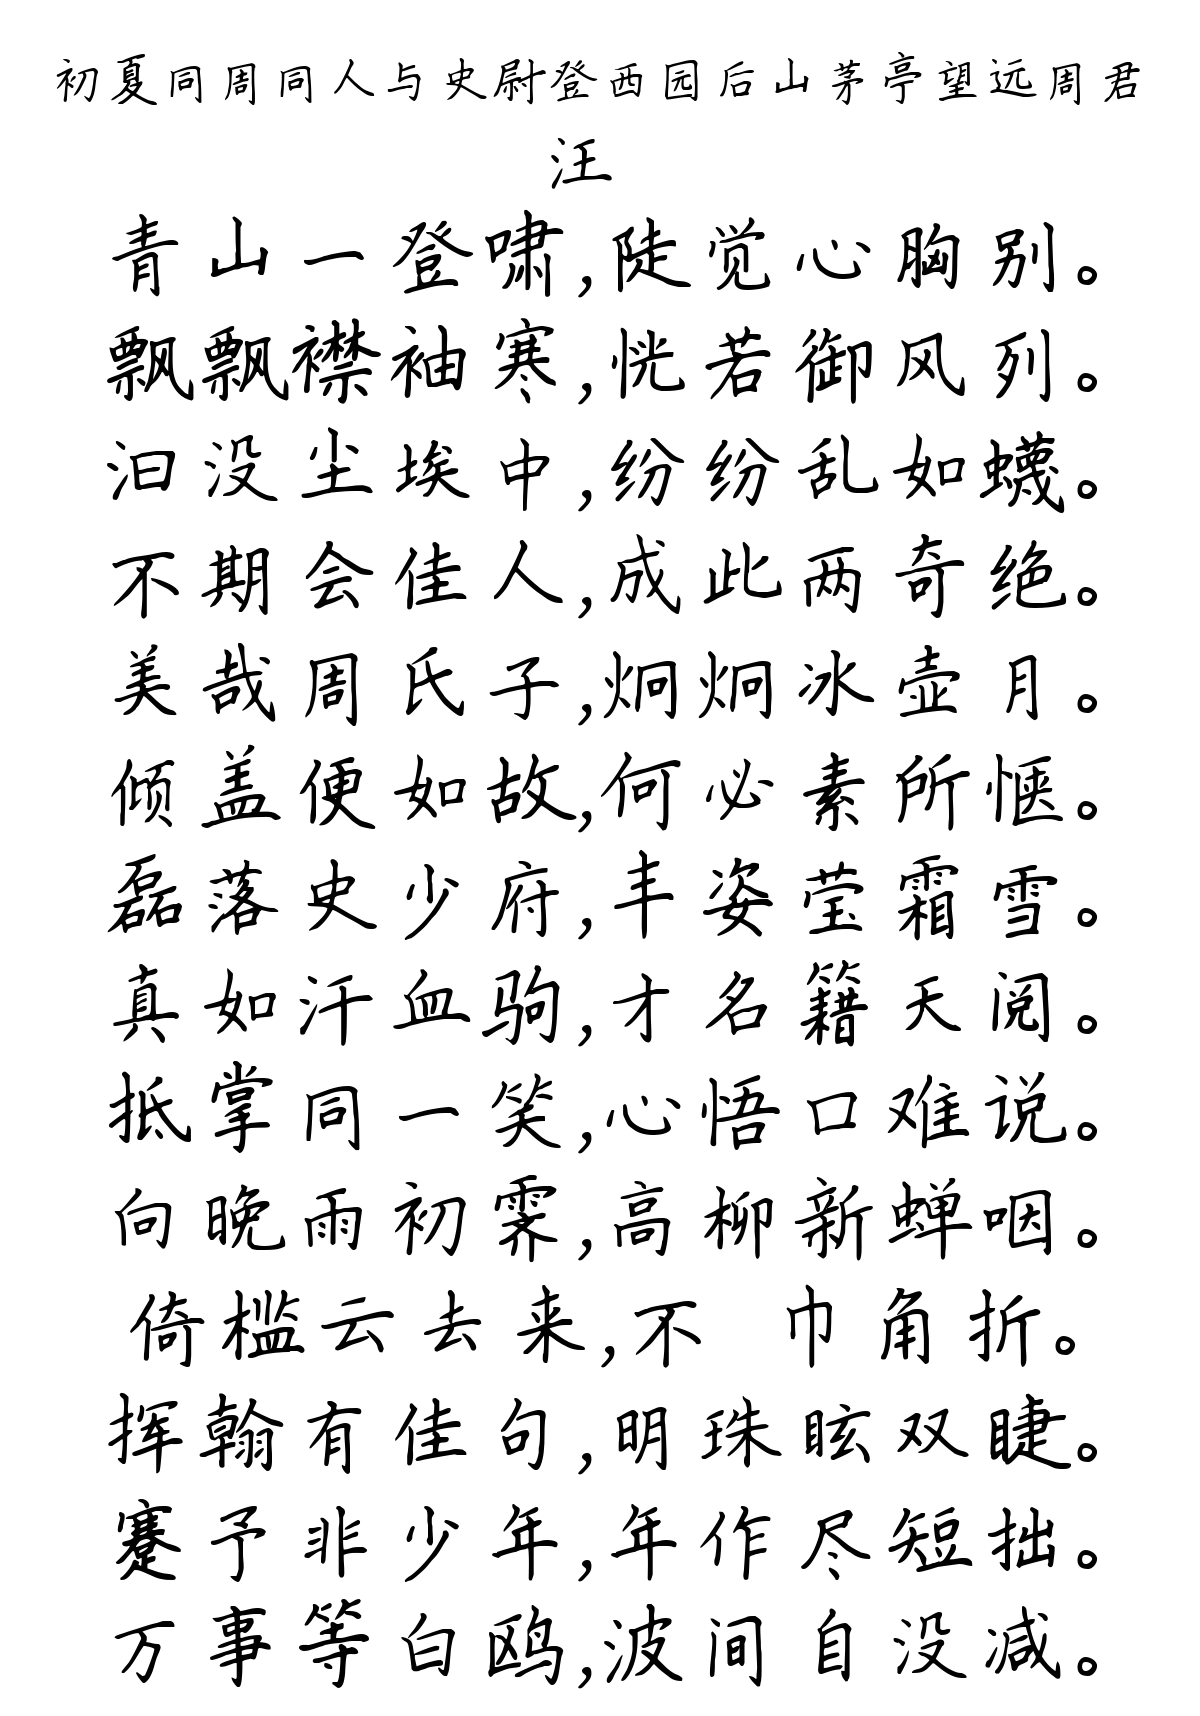 初夏同周同人与史尉登西园后山茅亭望远周君
汪
青山一登啸,陡觉心胸别。
飘飘襟袖寒,恍若御风列。
汩没尘埃中,纷纷乱如蠛。
不期会佳人,成此两奇绝。
美哉周氏子,炯炯冰壶月。
倾盖便如故,何必素所惬。
磊落史少府,丰姿莹霜雪。
真如汗血驹,才名籍天阅。
抵掌同一笑,心悟口难说。
向晚雨初霁,高柳新蝉咽。
倚槛云去来,不 巾角折。
挥翰有佳句,明珠眩双睫。
蹇予非少年,年作尽短拙。
万事等白鸥,波间自没减。